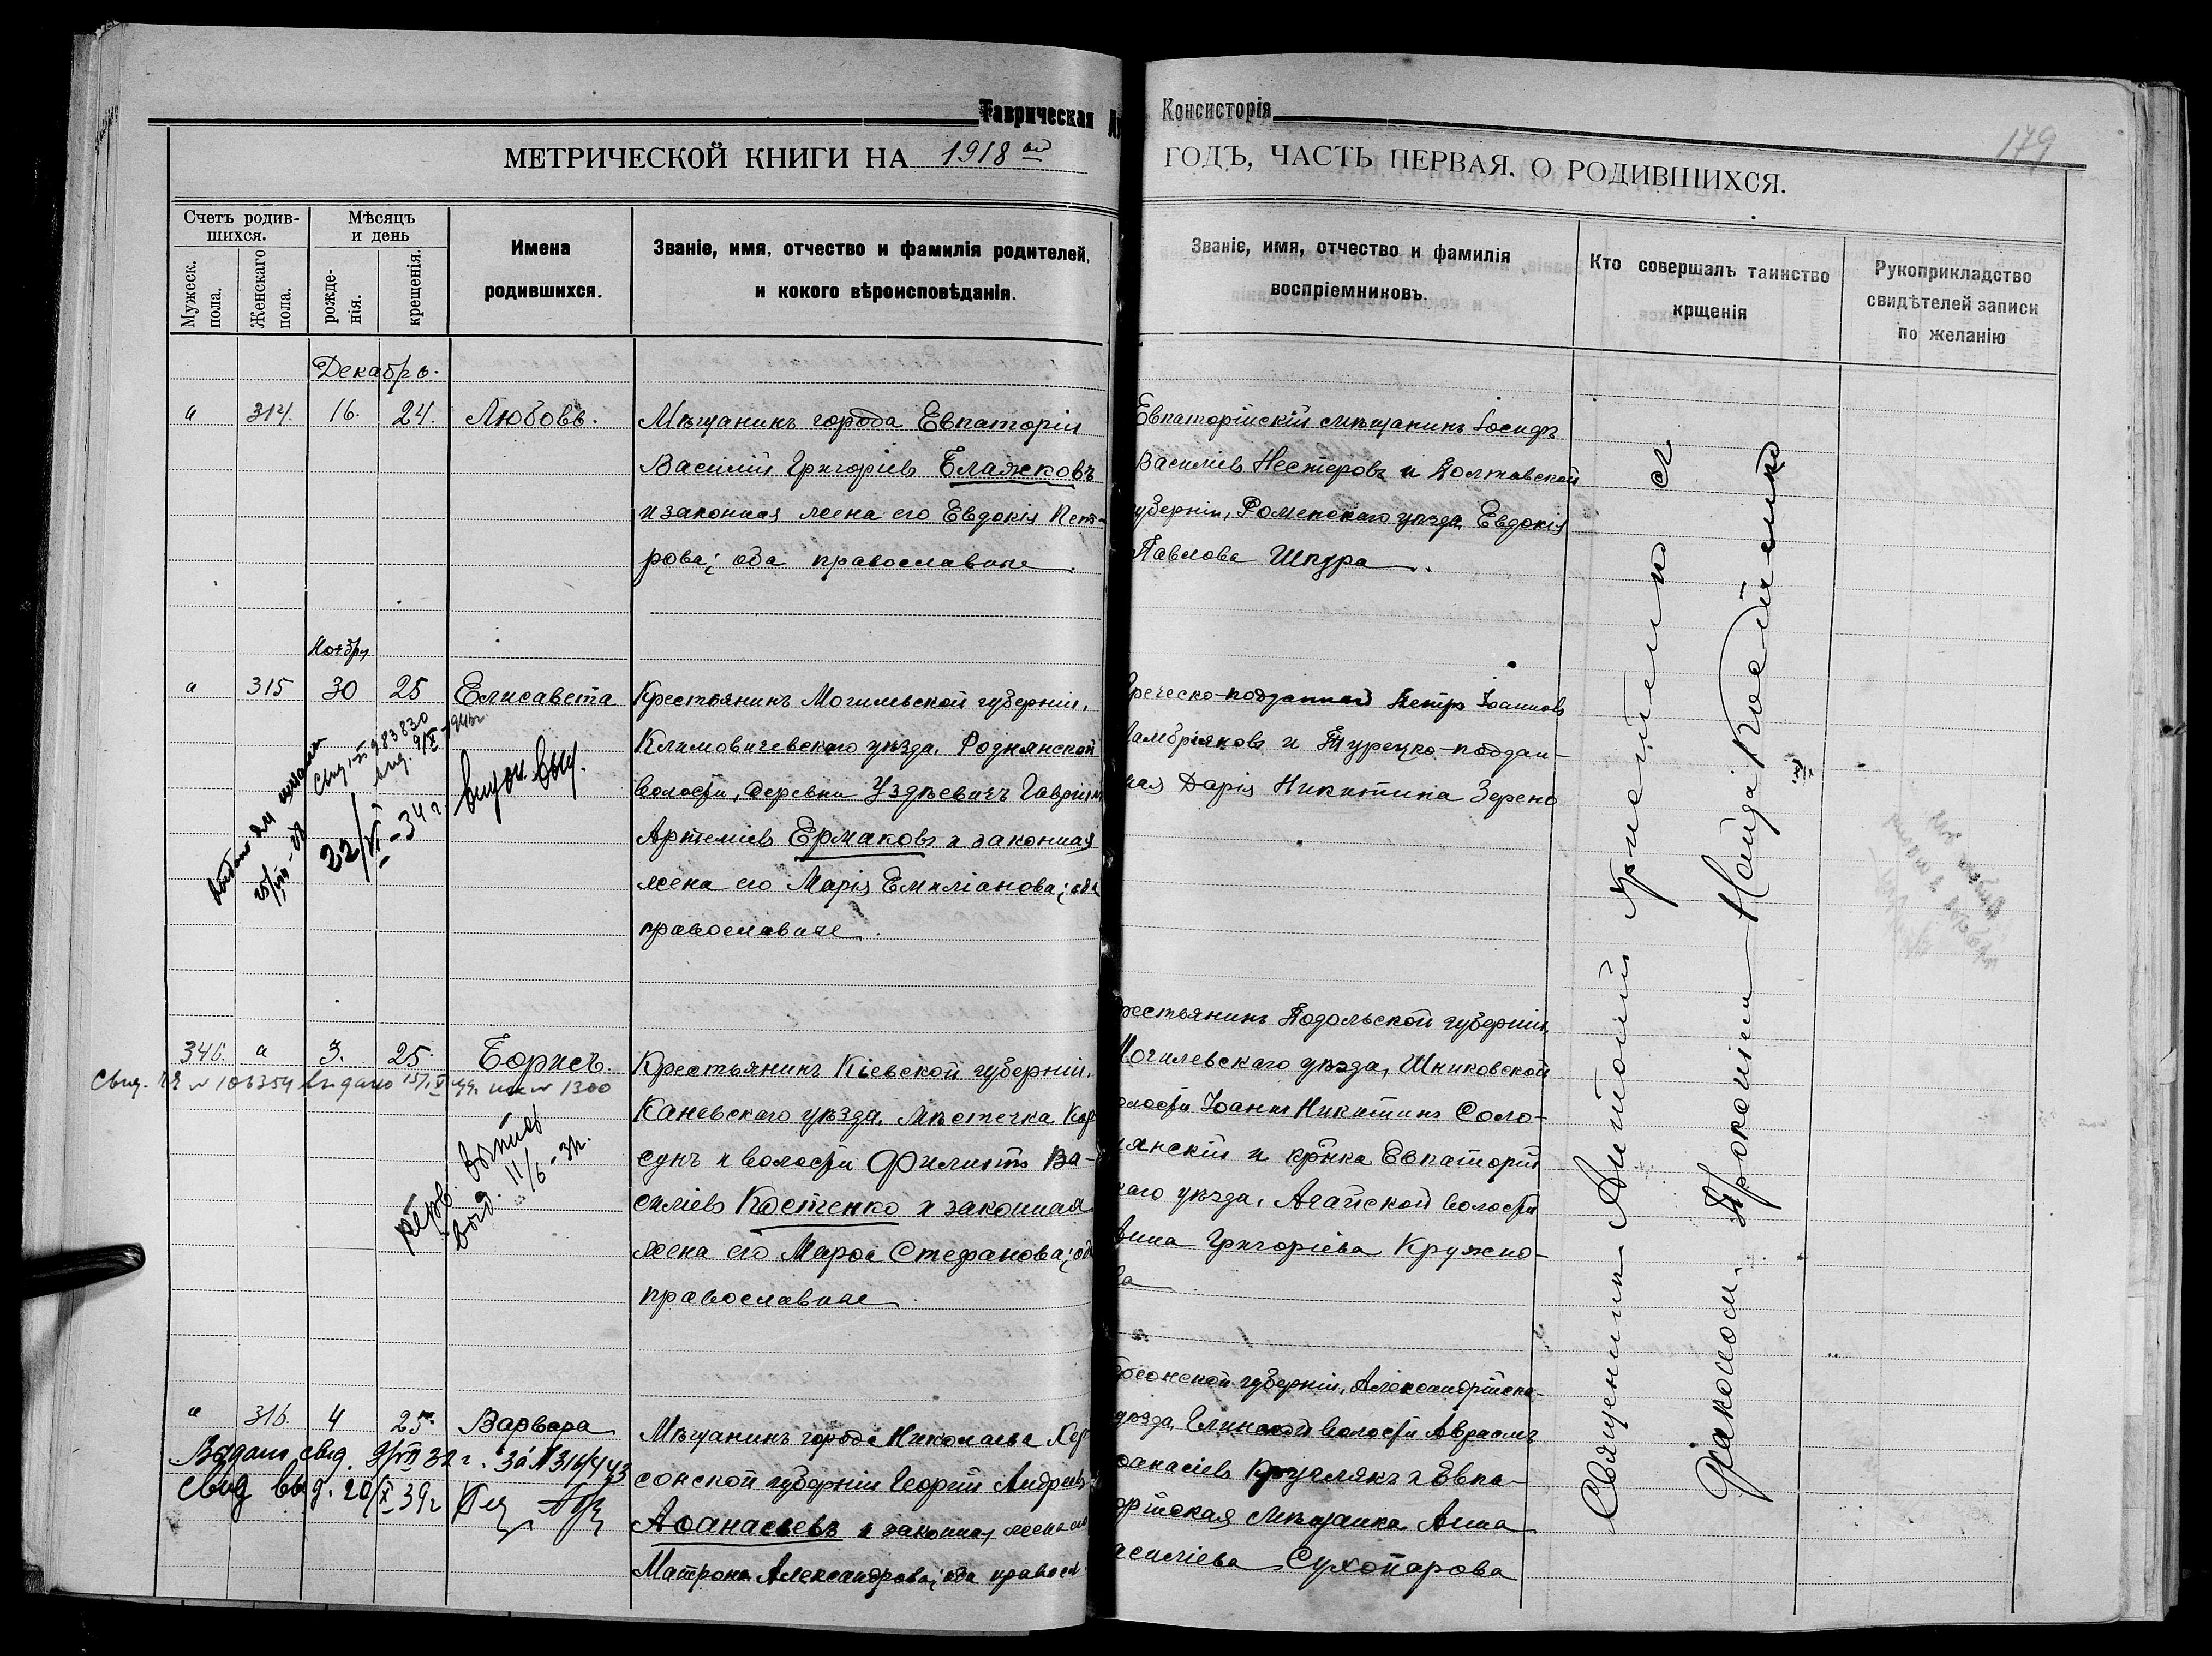 Таврическая
Консисторія
179
МЕТРИЧЕСКОЙ КНИГИ НА 1918 ой
ГОДЪ, ЧАСТЬ ПЕРВАЯ, О РОДИВШИХСЯ.
Счетъ родив-
шихся.
Мужеск. пола.
Женскаго пола.
Мѣсяцъ
и день
рожде-
нія.
крещенія.
Имена
родившихся.
Званіе, имя, отчество и фамилія родителей,
и кокого вѣроисповѣданія.
Званіе, имя, отчество и фамилія
воспріемниковъ.
Кто совершалъ таинство
крщенія
Рукоприкладство
свидѣтелей записи
по желанію
Декабрь.
" 314. 16. 24. Любовь.
Мѣщанинъ города Евпаторіи
Василій Григоріевъ Блажковъ
и законная жена его Евдокія Пет-
рова; оба православные.
Евпаторійскій мѣщанинъ Іосифъ
Василіевъ Нестеровъ и Полтавской
губерніи, Роменскаго уѣзда Евдокія
Павлова Шпура.
Ноябрь
" 315 30 25 Елисавета
Крестьянинъ Могилевской губерніи,
Климовичевскаго уѣзда, Роднянской
волости, деревни Уздѣевичъ Гавріилъ
Артеміевъ Ермаковъ и законная
жена его Марія Емиліанова; оба
православные.
Греческо-подданный Петръ Іоанновъ
Ламбріяковъ и Турецко-поддан-
ная Дарія Никитина Зерено
22/VI-34 г.
346. " 3. 25. Борисъ.
Крестьянинъ Кіевской губерніи,
Каневскаго уѣзда, мѣстечка Кор-
сунъ и волости Филиппъ Ва-
силіевъ Костенко и законная
жена его Марѳа Стефанова; оба
православные.
рестьянинъ Подольской губерніи,
Могилевскаго уѣзда, Шниковской
олости Іоаннъ Никитинъ Соло-
янскій и крѣнка Евпаторій
каго уѣзда, Агайской волости
Анна Григоріева Кружно-
ва
выд. 11/6-
" 316. 4 25. Варвара
Мѣщанинъ города Николаева Хер-
сонской губерніи Георгій Андреевъ
Аѳанасьевъ и законная жена его
Матрона Александрова; оба правосл.
рсонской губерніи, Александрійска-
уѣзда, Глинской волости Авраамъ
ѳанасіевъ Круглякъ и Евпа-
орійская мѣщанка Анна
асиліева Сухопарова
Свид. выд. 20/X 39 г
Священникъ Антоній
Діакономъ Прокопіемъ